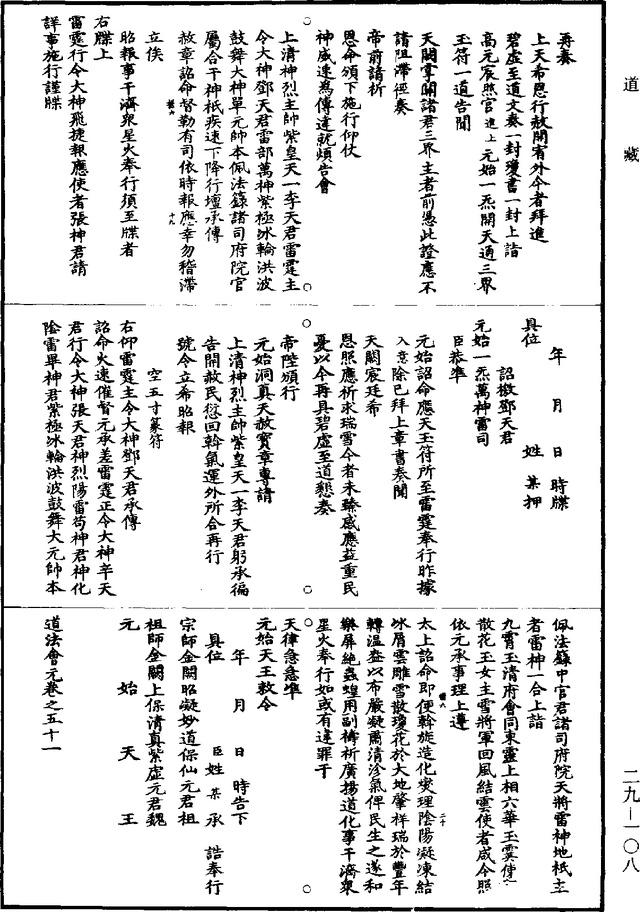 道藏
再奏
上天希恩行赦開宥外今者拜進
碧虛至道文奏一封瓊書一封上詣
高元宸照官進上元始一炁開天通三界
玉符一道告聞
天闕掌闢諸君三界主者前憑此證應不
請阻滯徑奏
帝前請祈
恩命頒下施行仰仗
神威速為傳達就煩告會
上清神烈主帥紫皇天一李天君雷霆主
令大神鄧天君雷部萬神紫極冰輪洪波
鼓舞大神單元帥本佩法籙諸司府院官
屬合干神祇疾速下降行壇承傳
赦章詔命督勒有司依時報應幸勿稽滯
立俟
昭報事干濟眾星火奉行須至牒者
右牒上
雷霆行令大神飛捷報應使者張神君請
詳事施行謹牒
年月日時牒
具位姓某押
詔檄鄧天君
元始一炁萬神雷司
臣恭準
元始詔命應天玉符所至雷霆奉行昨據
入意除已拜上章書奏聞
天闕宸廷希
恩照應祈求瑞雪今者未臻感應益重民
憂以今再具碧虛至道懇奏
帝陛頒行
元始洞真天赦寶章專請
上清神烈主帥紫皇天一李天君躬承徧
告開赦民愆回斡氣運外所合再行
號令立希昭報
空五寸篆符
右仰雷霆主令大神鄧天君承傳
詔命火速催督元承差雷霆正令大神辛天
君行令大神張天君神烈陽雷苟神君神化
陰雷畢神君紫極冰輪洪波鼓舞大元帥本
佩法籙中官君諸司府院天將雷神地祇主
者雷神一合上詣
九霄玉清府會同東靈上相六華玉雲使
散花玉女主雪將軍回風結雲使者咸令照
依元承事理上遵
太上詔命即便斡旋造化燮理陰陽凝凍結
冰屑雲雕雪散瓊花於大地肇祥瑞於豐年
轉溫盎以布嚴凝爾清沴氣俾民生之遂和
樂屏絕蟲蝗用副禱祈廣揚道化事干濟眾
星火奉行如或有違罪于
天律急急準
元始天王敕令
年月日時告下
具位臣姓某承誥奉行
宗師金闕昭凝妙道保仙元君祖
祖師金闕上保清真紫虛元君魏
元始天王
道法會元卷之五十一
二九—一〇八